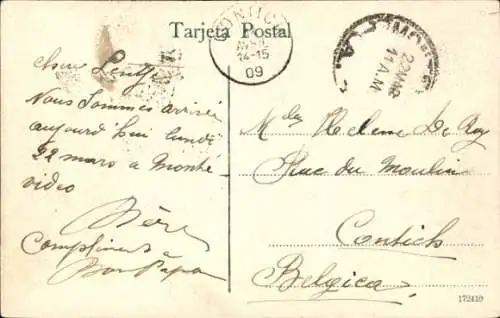 Tarjeta Postal
CONTICH
AVRIL
14-15
09
22 MAR
11 A.M.
Chere Lenty
Nous sommes arrivé
aujourd hui lundi
22 mars a Monté
video
Mère
Compliments à
Bon Papa
Mly Helene De Roy
Rue du Moulin
Contich
Belgica
172410